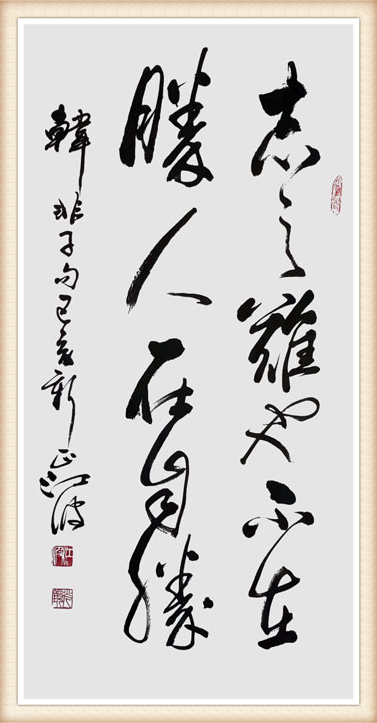 志之难也不在
勝人在自勝
韓非子句己亥新正江波